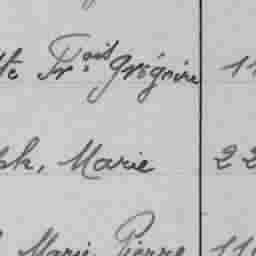 te Fr.ois Grégoire 11
ph, Marie 22
Marie Pierre 110